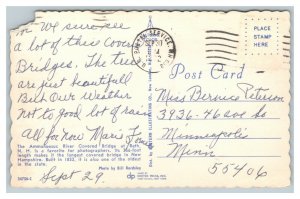 We surpose
a lot of this Covered
Bridges. The trees
are just beautiful
But Our Weather
Not to good lot of rain
All for Now Marie's
The Ammonoosuc River Covered Bridge at Bath,
N. H. is a favorite for photographers. Its
makes it the longest covered bridge in
New Hampshire. Built in 1832, it is also one of the oldest
in the state.
Photo by Bill
Sept 29.
SEP 30
PM
PLACE
STAMP
HERE
Post Card
Miss Bernice Peterson
3936-46 ave So
Minneapolis
Minn
55406
dp